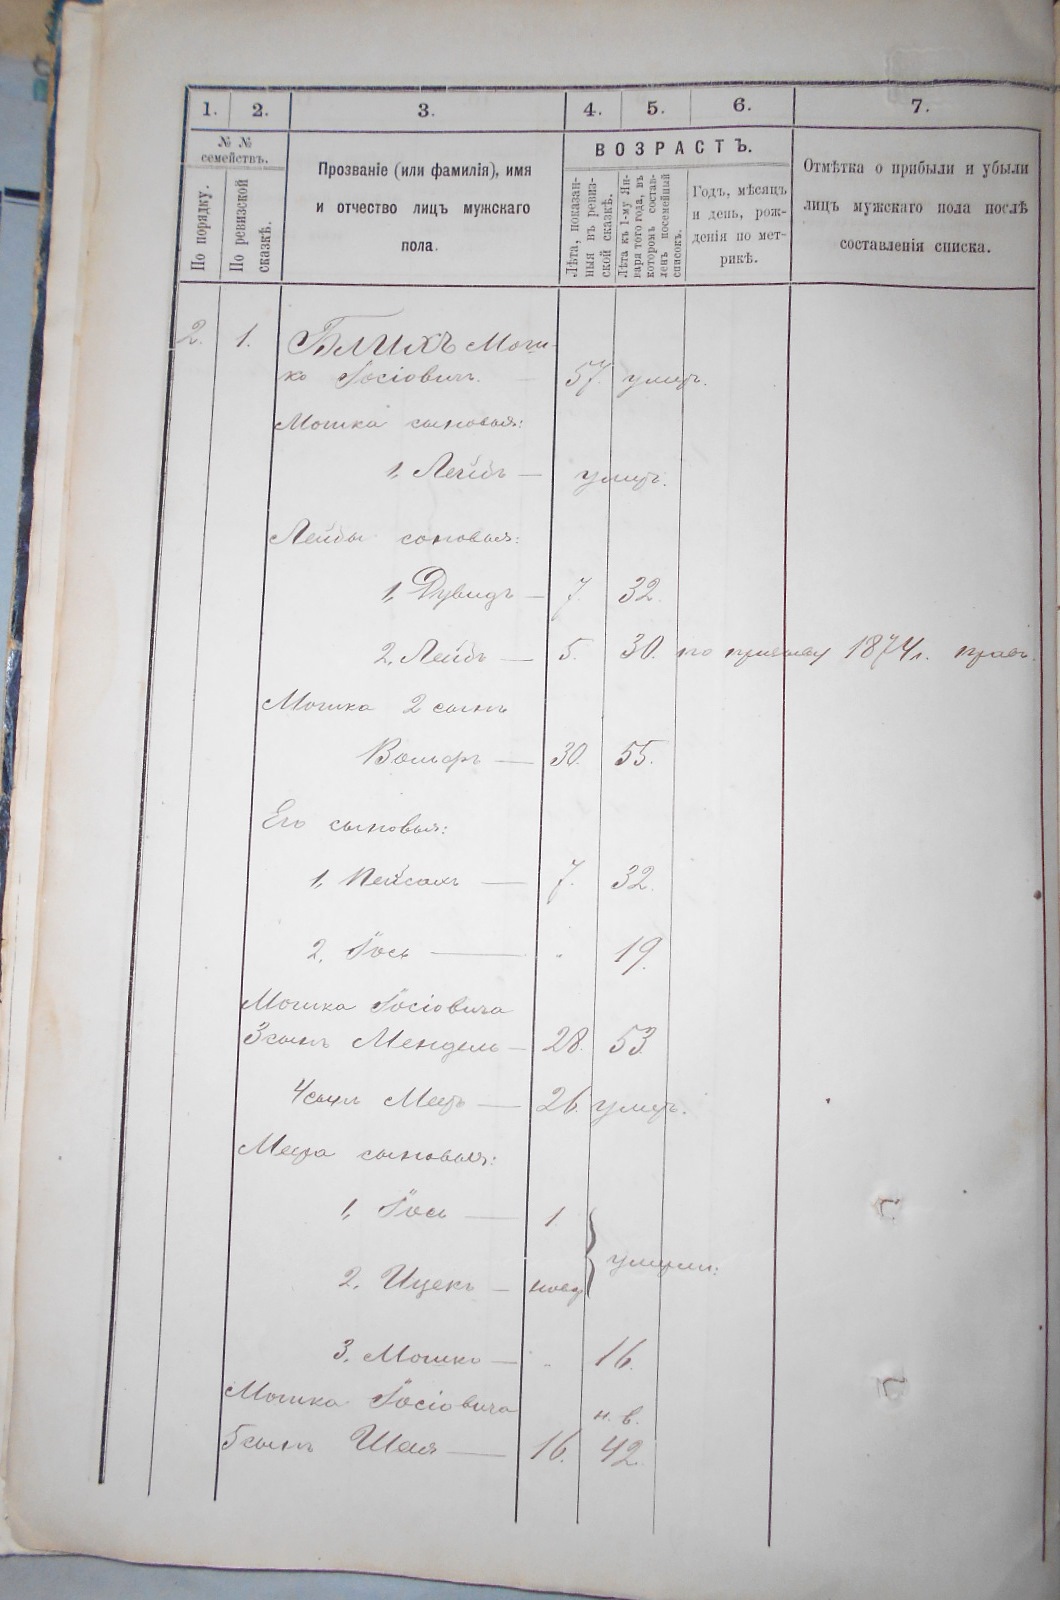 1. 2. 3. 4. 5. 6. 7.
№ №
семействъ.
По порядку.
По ревизской
сказкѣ.
Прозваніе (или фамилія), имя
и отчество лицъ мужскаго
пола.
ВОЗРАСТЪ.
Лѣта, показан-
ныя въ ревиз-
ской сказкѣ.
Лѣта къ 1-му Ян-
варя того года, въ
которомъ состав-
ленъ посемейный
списокъ.
Годъ, мѣсяцъ
и день, рож-
денія по мет-
рикѣ.
Отмѣтка о прибыли и убыли
лицъ мужскаго пола послѣ
составленія списка.
2. 1. Блихъ Мош-
ко Іосіовичъ. 57. умеръ.
Мошка сыновья:
1, Лейбъ — умеръ.
Лейбы сыновья:
1, Дувидъ — 7. 32.
2. Лейбъ — 5. 30. по призыву 1874 г.
Мошка 2 сынъ
Вольфъ — 30. 55.
Его сыновья:
1, Пейсахъ — 7. 32.
2. Іось — " 19.
Мошка Іосіовича
3 сынъ Мендель — 28. 53.
4 сынъ Мееръ — 26. умеръ.
Меера сыновья:
1, Іось — 1
умерли:
2. Ицекъ — новор
3. Мошко — " 16.
Мошка Іосіовича
н. в.
5 сынъ Шая — 16. 42.